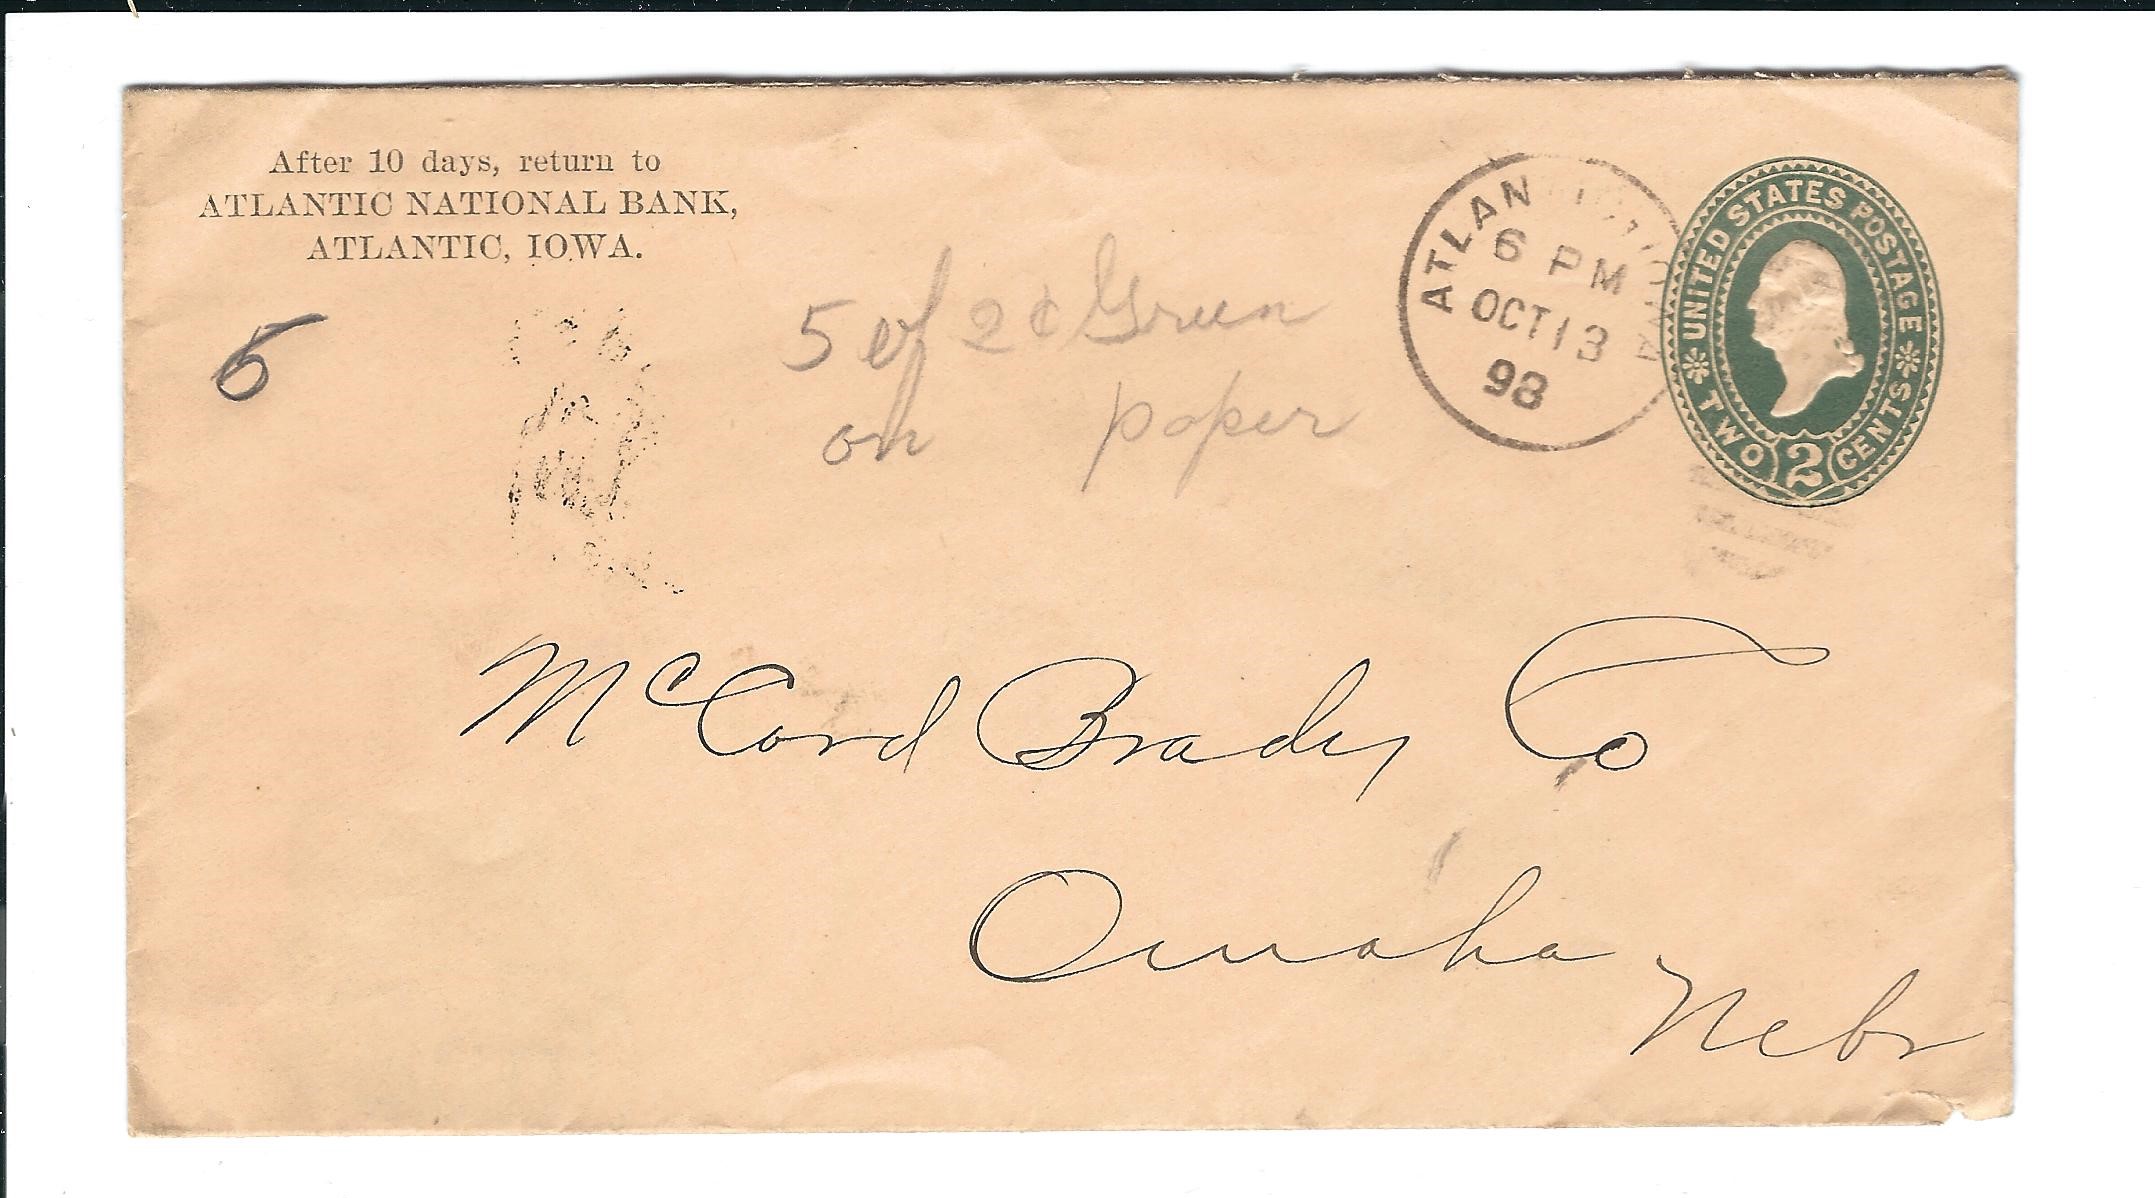 After 10 days, return to
ATLANTIC NATIONAL BANK,
ATLANTIC, IOWA.
5
5 of 2¢ Green
on paper
ATLANTIC, IOWA
6 PM
OCT 13
98
UNITED STATES POSTAGE
TWO 2 CENTS
McCord Brady Co
Omaha
Nebr